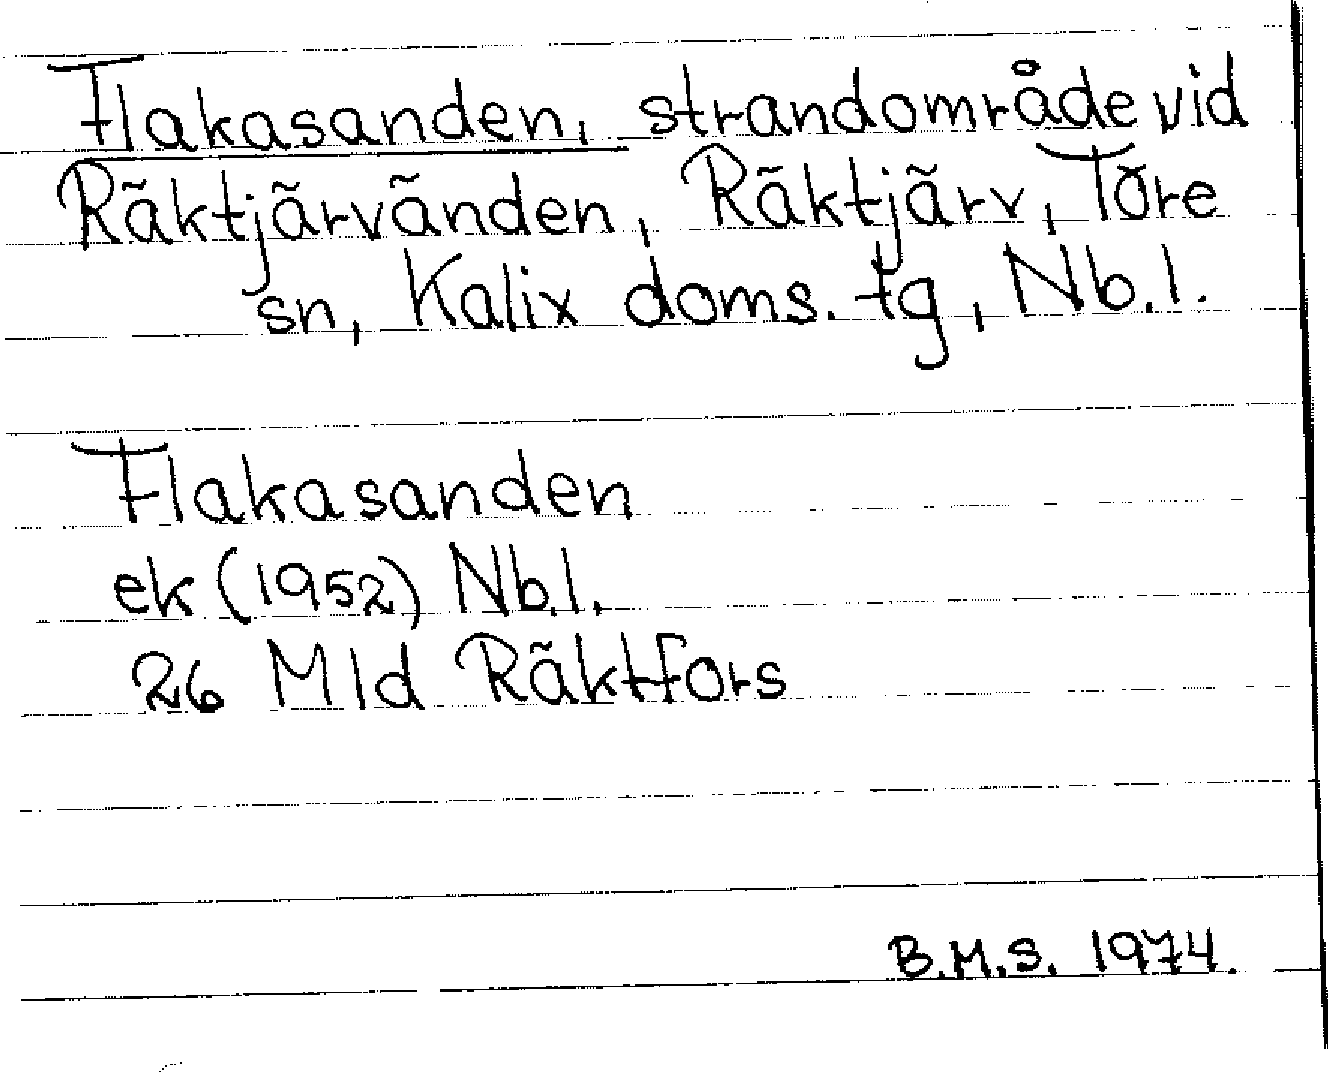 Flakasanden, strandområde vid
Räktjärvänden, Räktjärv, Töre
sn, Kalix doms. tg, Nb.l.
Flakasanden
ek (1952) Nb.l.
26 Mld Räktfors
B.M.S. 1974.